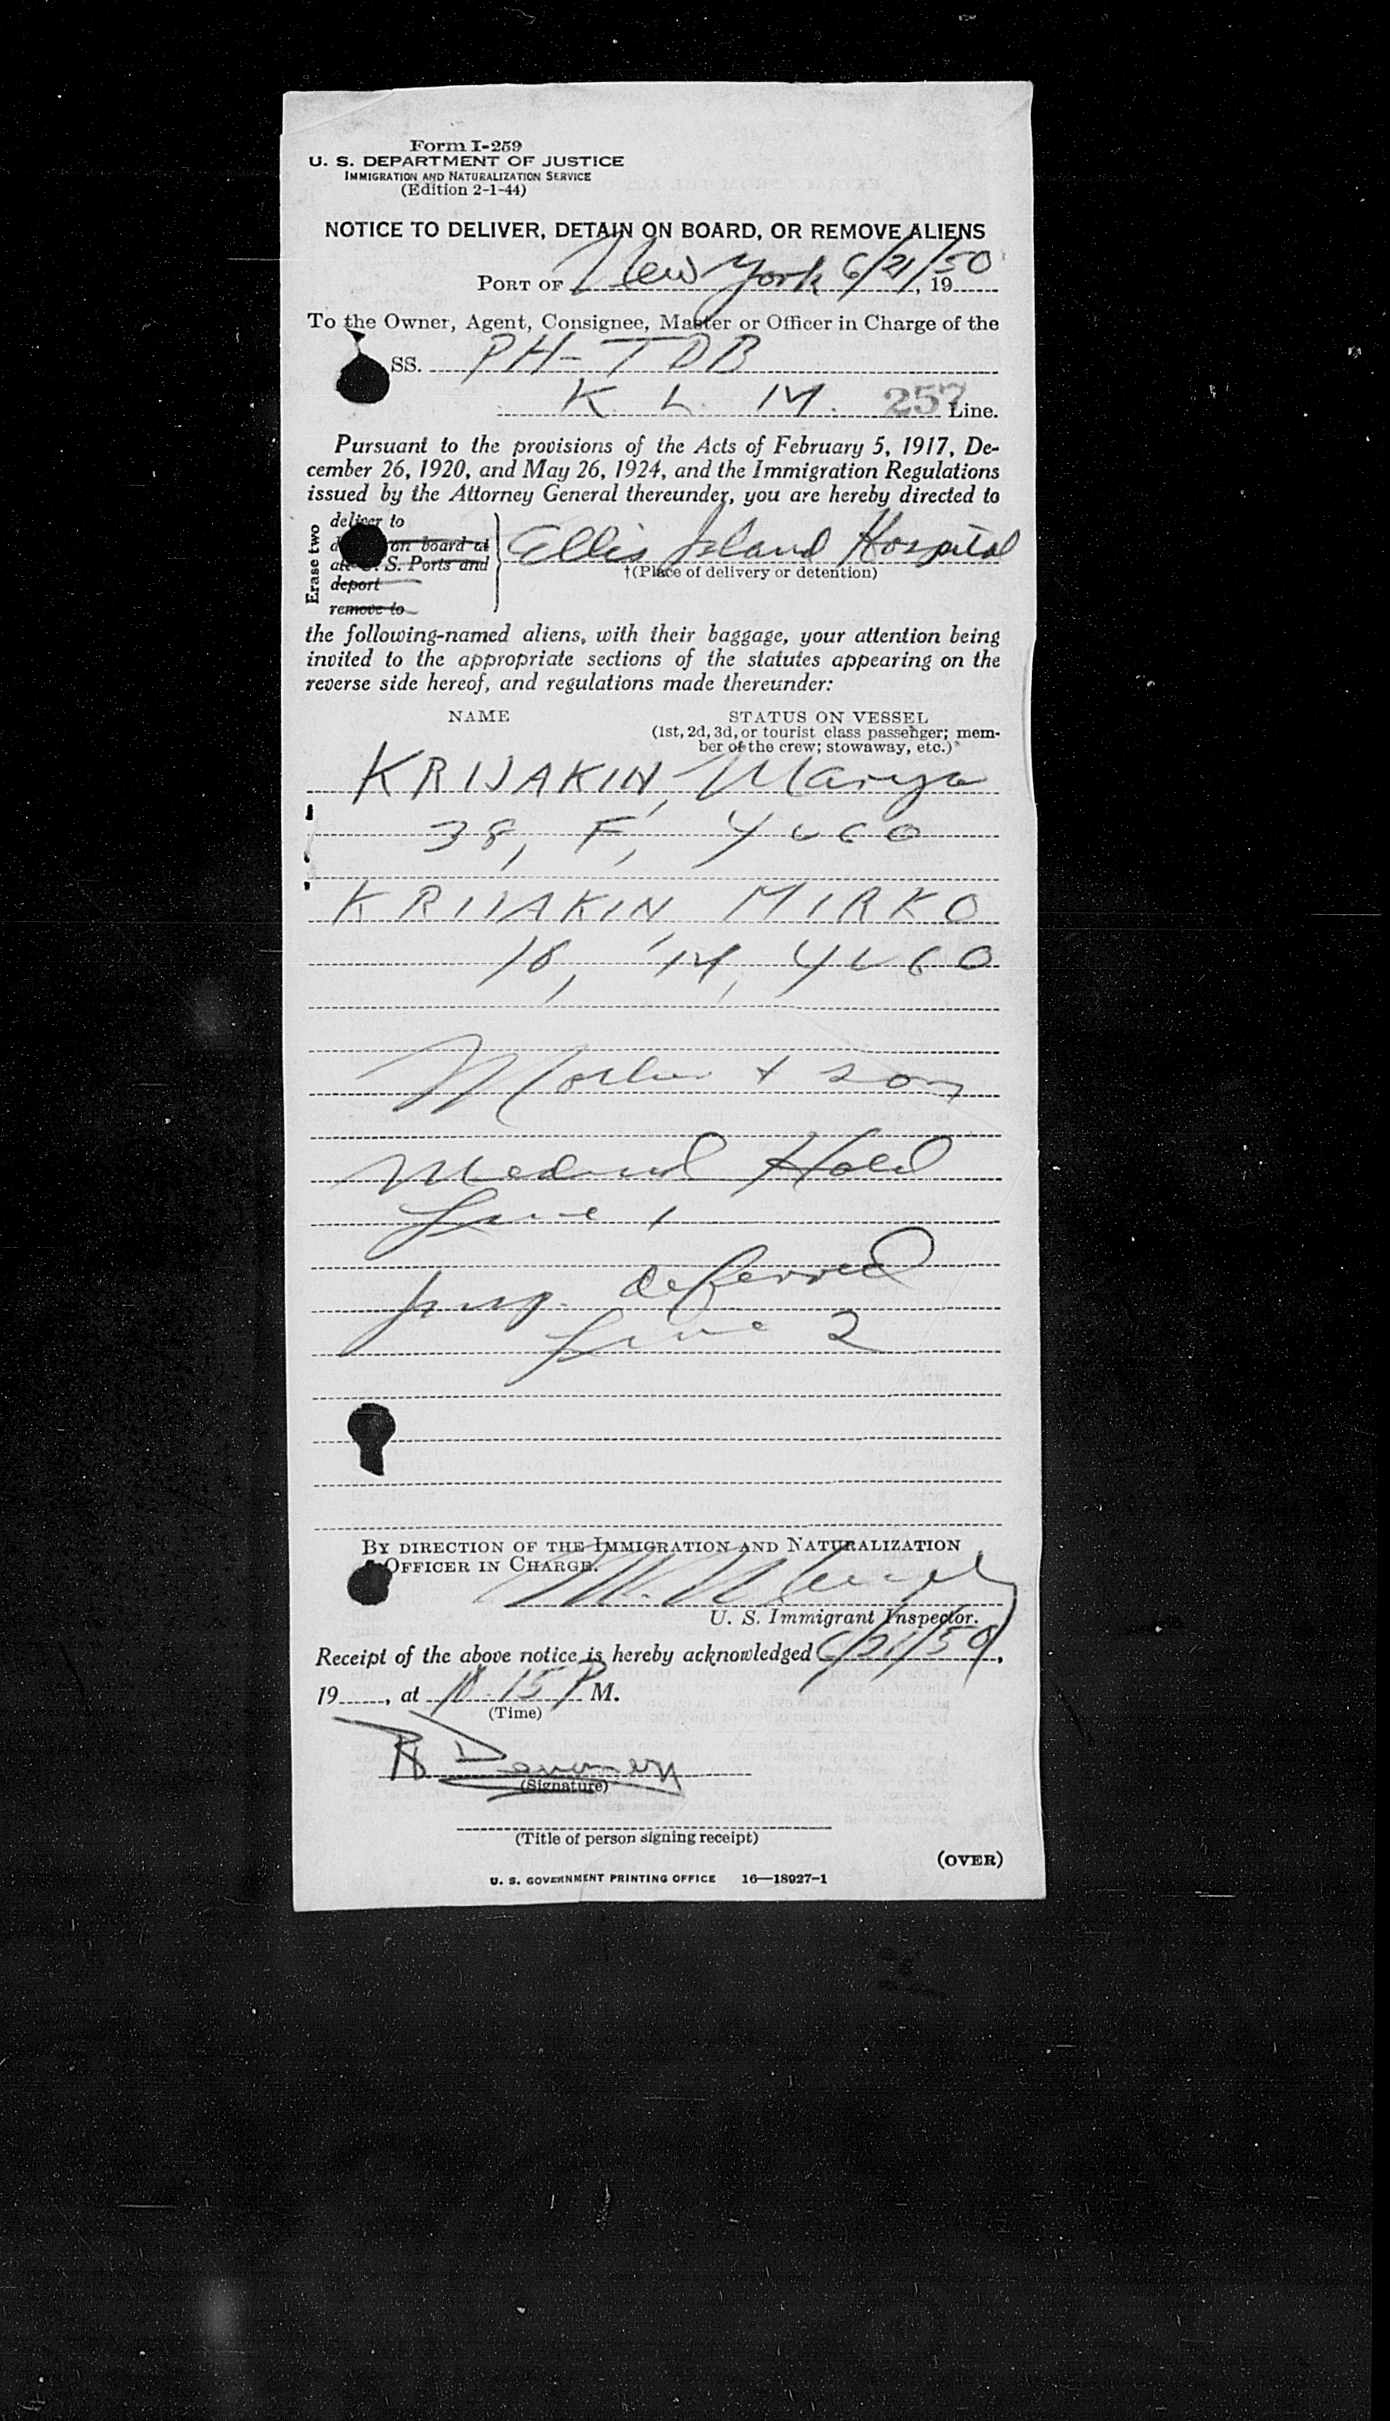 Form I-259
U. S. DEPARTMENT OF JUSTICE
IMMIGRATION AND NATURALIZATION SERVICE
(Edition 2-1-44)
NOTICE TO DELIVER, DETAIN ON BOARD, OR REMOVE ALIENS
PORT OF New York 6/21/50, 19
To the Owner, Agent, Consignee, Master or Officer in Charge of the
SS. PH-TDB
K. L. M. 257 Line.
Pursuant to the provisions of the Acts of February 5, 1917, De-
cember 26, 1920, and May 26, 1924, and the Immigration Regulations
issued by the Attorney General thereunder, you are hereby directed to
Erase two
deliver to
on board at
S. Ports and
deport
remove to
Ellis Island Hospital
†(Place of delivery or detention)
the following-named aliens, with their baggage, your attention being
invited to the appropriate sections of the statutes appearing on the
reverse side hereof, and regulations made thereunder:
NAME STATUS ON VESSEL
(1st, 2d, 3d, or tourist class passenger; mem-
ber of the crew; stowaway, etc.)
KRIJAKIN, Marya
38, F, YUGO
KRIJAKIN, MIRKO
18, M, YUGO
Mother + son
Medical Hold
Line 1
Insp. deferred
Line 2
BY DIRECTION OF THE IMMIGRATION AND NATURALIZATION
OFFICER IN CHARGE.
U. S. Immigrant Inspector.
Receipt of the above notice is hereby acknowledged 6/21/50,
19, at 10.15 P M.
(Time)
(Signature)
(Title of person signing receipt)
(OVER)
U. S. GOVERNMENT PRINTING OFFICE 16—18027-1